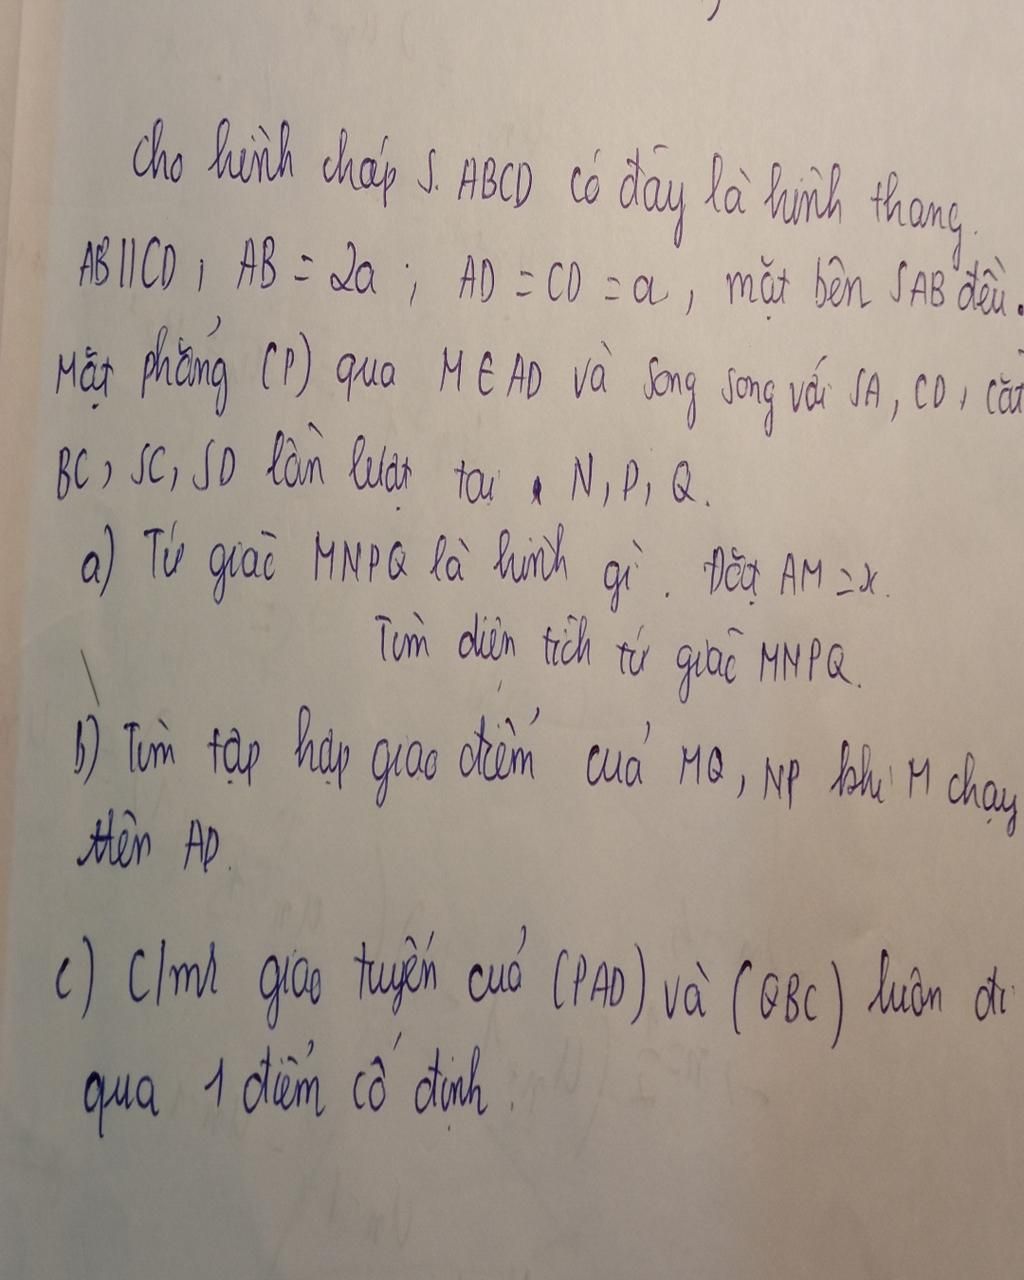 Cho hình chóp S. ABCD có đáy là hình thang.
AB//CD, AB = 2a ; AD = CD = a, mặt bên SAB đều.
Mặt phẳng (P) qua M ∈ AD và song song với SA, CD, cắt
BC, SC, SD lần lượt tại N, P, Q.
a) Tứ giác MNPQ là hình gì. Đặt AM = x.
Tìm diện tích tứ giác MNPQ.
b) Tìm tập hợp giao điểm của MQ, NP khi M chạy
trên AD.
c) C/mr giao tuyến của (PAD) và (QBC) luôn đi
qua 1 điểm cố định.